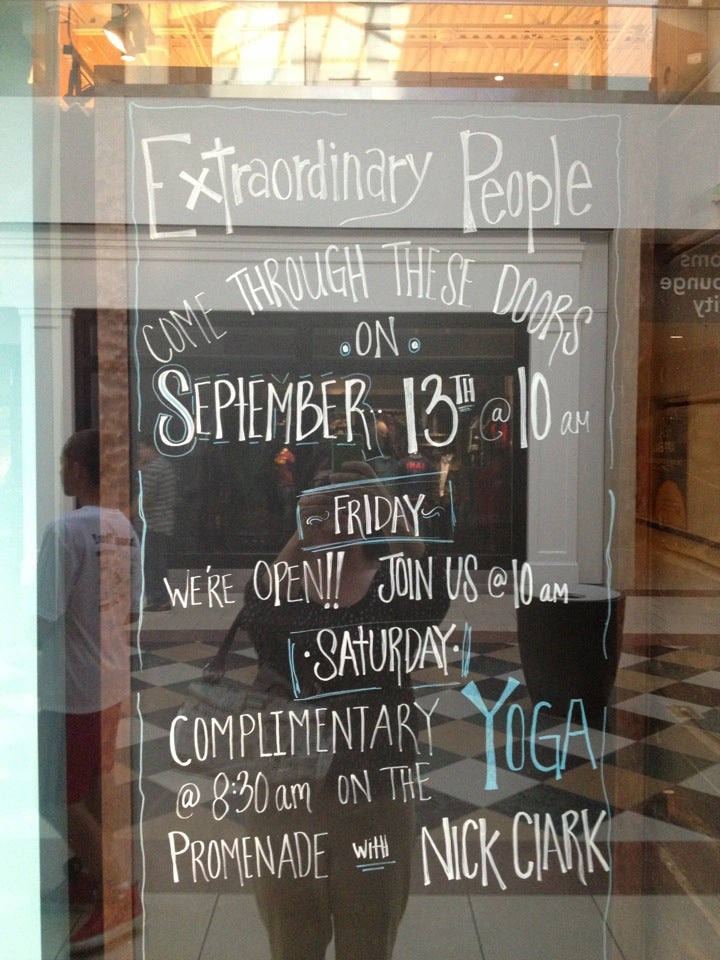 Extraordinary People
COME THROUGH THESE DOORS
ON
SEPTEMBER 13TH @ 10 AM
~ FRIDAY ~
WE'RE OPEN!! JOIN US @ 10 AM
SATURDAY
COMPLIMENTARY YOGA
@ 8:30 am ON THE
PROMENADE with NICK ClARK